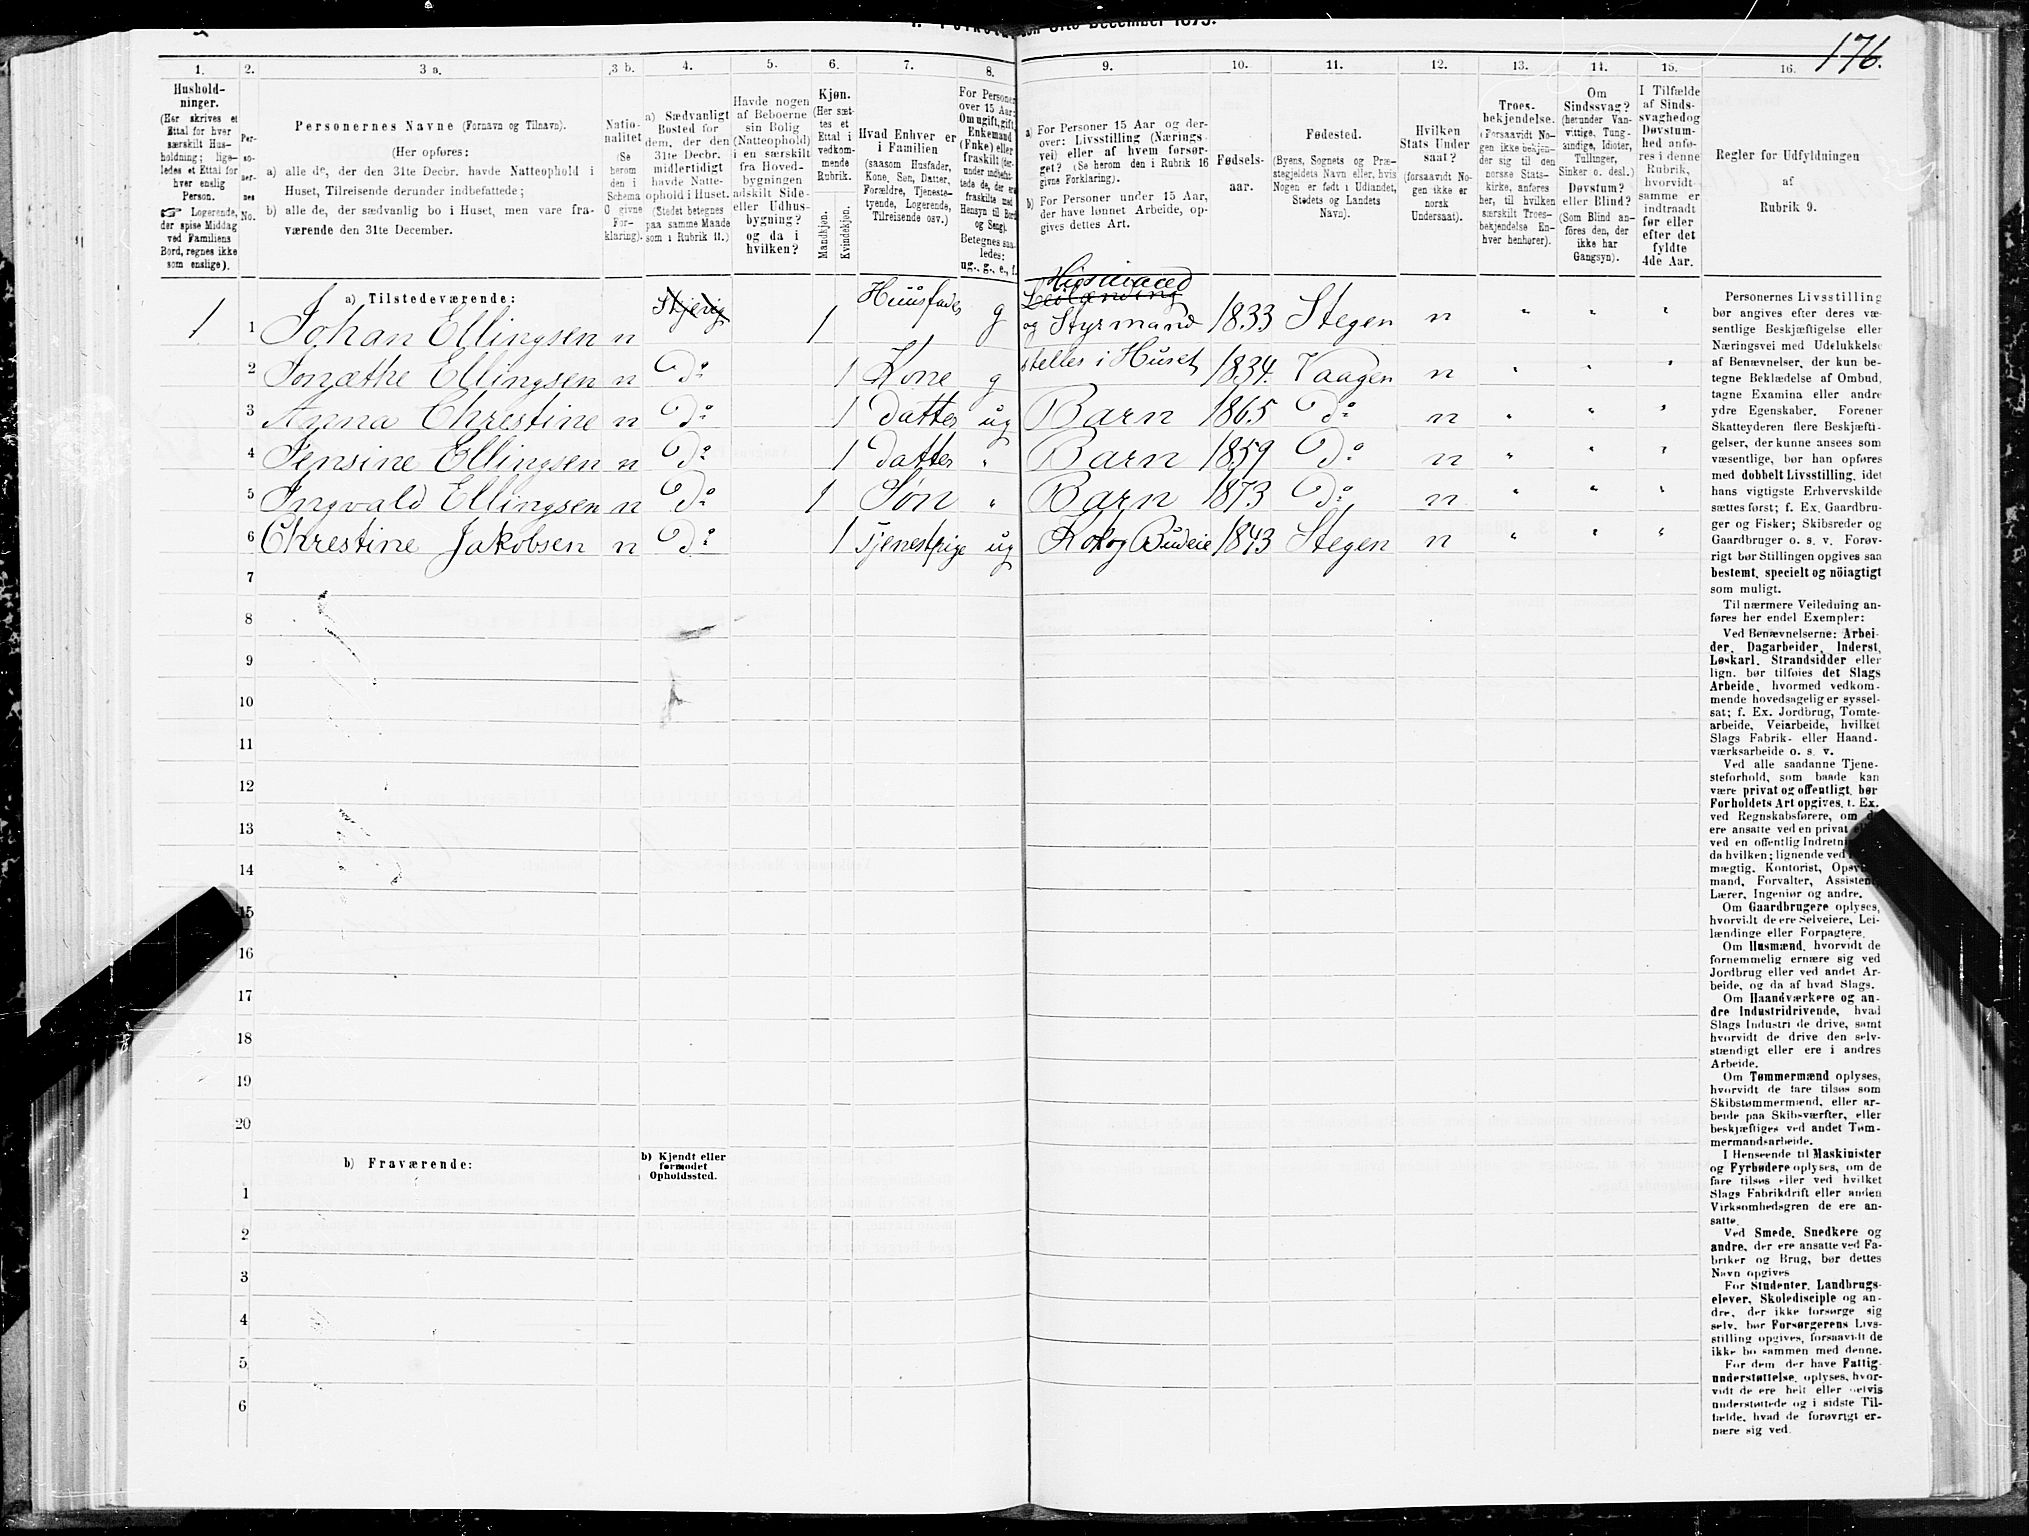 176.
1. 2. 3 a. 3 b. 4. 5. 6. 7. 8. 9. 10. 11. 12. 13. 14. 15. 16.
Hushold-
ninger.
(Her skrives et
Ettal for hver
særskilt Hus-
holdning; lige-
ledes et Ettal for
hver enslig
Person.
☞ Logerende,
der spise Middag
ved Familiens
Bord, regnes ikke
som enslige).
Per-
so-
ner-
nes
No.
Personernes Navne (Fornavn og Tilnavn).
(Her opføres:
a) alle de, der den 31te Decbr. havde Natteophold i
Huset, Tilreisende derunder indbefattede;
b) alle de, der sædvanlig bo i Huset, men vare fra-
værende den 31te December.
Natio-
nalitet
(Se
herom
den i
Schema
O givne
For-
klaring).
a) Sædvanligt
Bosted for
dem, der den
31te Decbr.
midlertidigt
havde Natte-
ophold i Huset.
(Stedet betegnes
paa samme Maade
som i Rubrik 11.)
Havde nogen
af Beboerne
sin Bolig
(Natteophold)
i en særskilt
fra Hoved-
bygningen
adskilt Side-
eller Udhus-
bygning?
og da i
hvilken?
Kjøn.
(Her sæt-
tes et
Ettal i
vedkom-
mende
Rubrik.
Mandkjøn.
Kvindekjøn.
Hvad Enhver er
i Familien
(saasom Husfader,
Kone, Søn, Datter,
Forældre, Tjeneste-
tyende, Logerende,
Tilreisende osv.)
For Personer
over 15 Aar:
Om ugift, gift,
Enkemand
(Enke) eller
fraskilt (der-
under indbefat-
tede de, der ere
fraskilte med
Hensyn til Bord
og Seng).
Betegnes saa-
ledes:
ug., g., e., f.
a) For Personer 15 Aar og der-
over: Livsstilling (Nærings-
vei) eller af hvem forsør-
get? (Se herom den i Rubrik 16
givne Forklaring).
b) For Personer under 15 Aar,
der have lønnet Arbeide, op-
gives dettes Art.
Fødsels-
aar.
Fødested.
(Byens, Sognets og Præ-
stegjeldets Navn eller, hvis
Nogen er født i Udlandet,
Stedets og Landets
Navn).
Hvilken
Stats Under
saat?
(forsaavidt No-
gen ikke er
norsk
Undersaat).
Troes-
bekjendelse.
(Forsaavidt No-
gen ikke bekjen-
der sig til den
norske Stats-
kirke, anføres
her, til hvilken
særskilt Troes-
bekjendelse En-
hver henhører).
Om
Sindssvag?
(herunder Van-
vittige, Tung-
sindige, Idioter,
Tullinger,
Sinker o. desl.)
Døvstum?
eller Blind?
(Som Blind an-
føres den, der
ikke har
Gangsyn).
I Tilfælde
af Sinds-
svaghed og
Døvstum-
hed anfø-
res i denne
Rubrik,
hvorvidt
samme er
indtraadt
før eller
efter det
fyldte
4de Aar.
Regler for Udfyldningen
af
Rubrik 9.
a) Tilstedeværende:
Huusmand
1 1 Johan Ellingsen n Skjerig 1 Huusfader g Leilænding og Styrmand 1833 Stegen n " " "
2 Jonæthe Ellingsen n Do 1 Kone g stelles i Huset 1834. Vaagen n " " "
3 Anna Chrestine n Do 1 datter ug Barn 1865 Do n " " "
4 Jensine Ellingsen n Do 1 datter " Barn 1859 Do n " " "
5 Ingvald Ellingsen n Do 1 Søn " Barn 1873 Do n " " "
6 Chrestine Jakobsen n Do 1 tjenestpige ug Kok og Budeie 1843 Stegen n " " "
7
8
9
10
11
12
13
14
15
16
17
18
19
20
b) Fraværende:
b) Kjendt eller
formodet
Opholdssted.
1
2
3
4
5
6
Personernes Livsstilling
bør angives efter deres væ-
sentlige Beskjæftigelse eller
Næringsvei med Udelukkelse
af Benævnelser, der kun be-
tegne Beklædelse af Ombud,
tagne Examina eller andre
ydre Egenskaber. Forener
Skatteyderen flere Beskjæfti-
gelser, der kunne ansees som
væsentlige, bør han opføres
med dobbelt Livsstilling, idet
hans vigtigste Erhvervskilde
sættes først; f. Ex. Gaardbru-
ger og Fisker; Skibsreder og
Gaardbruger o. s. v. Forøv-
rigt bør Stillingen opgives saa
bestemt, specielt og nöiagtigt
som muligt.
Til nærmere Veiledning an-
føres her endel Exempler:
Ved Benævnelserne: Arbei-
der, Dagarbeider, Inderst,
Løskarl, Strandsidder eller
lign. bør tilføies det Slags
Arbeide, hvormed vedkom-
mende hovedsagelig er syssel-
sat; f. Ex. Jordbrug, Tomte-
arbeide, Veiarbeide, hvilket
Slags Fabrik- eller Haand-
værksarbeide o. s. v.
Ved alle saadanne Tjene-
steforhold, som baade kan
være privat og offentligt, bør
Forholdets Art opgives, f. Ex.
ved Regnskabsførere, om
ere ansatte ved en privat
ved en offentlig Indretni
da hvilken; lignende ved
mægtig, Kontorist, Opsy
mand, Forvalter, Assistent,
Lærer, Ingeniør og andre.
Om Gaardbrugere oplyses,
hvorvidt de ere Selveiere, Lei-
lændinge eller Forpagtere.
Om Husmænd, hvorvidt de
fornemmelig ernære sig ved
Jordbrug eller ved andet Ar-
beide, og da af hvad Slags.
Om Haandværkere og an-
dre Industridrivende, hvad
Slags Industri de drive, samt
hvorvidt de drive den selv-
stændigt eller ere i andres
Arbeide.
Om Tømmermænd oplyses,
hvorvidt de fare tilsøs som
Skibstømmermænd, eller ar-
beide paa Skibsværfter, eller
beskjæftiges ved andet Tøm-
mermandsarbeide.
I Henseende til Maskinister
og Fyrbødere oplyses, om de
fare tilsøs eller ved hvilket
Slags Fabrikdrift eller anden
Virksomhedsgren de ere an-
satte.
Ved Smede, Snedkere og
andre, der ere ansatte ved Fa-
briker og Brug, bør dettes
Navn opgives
For Studenter, Landbrugs-
elever, Skoledisciple og an-
dre, der ikke forsørge sig
selv, bør Forsørgerens Livs-
stilling opgives, forsaavidt de
ikke bo sammen med denne.
For dem der have Fattig-
understøttelse, oplyses, hvor-
vidt de ere helt eller delvis
understøttede og i sidste Til-
fælde, hvad de forøvrigt er-
nære sig ved.